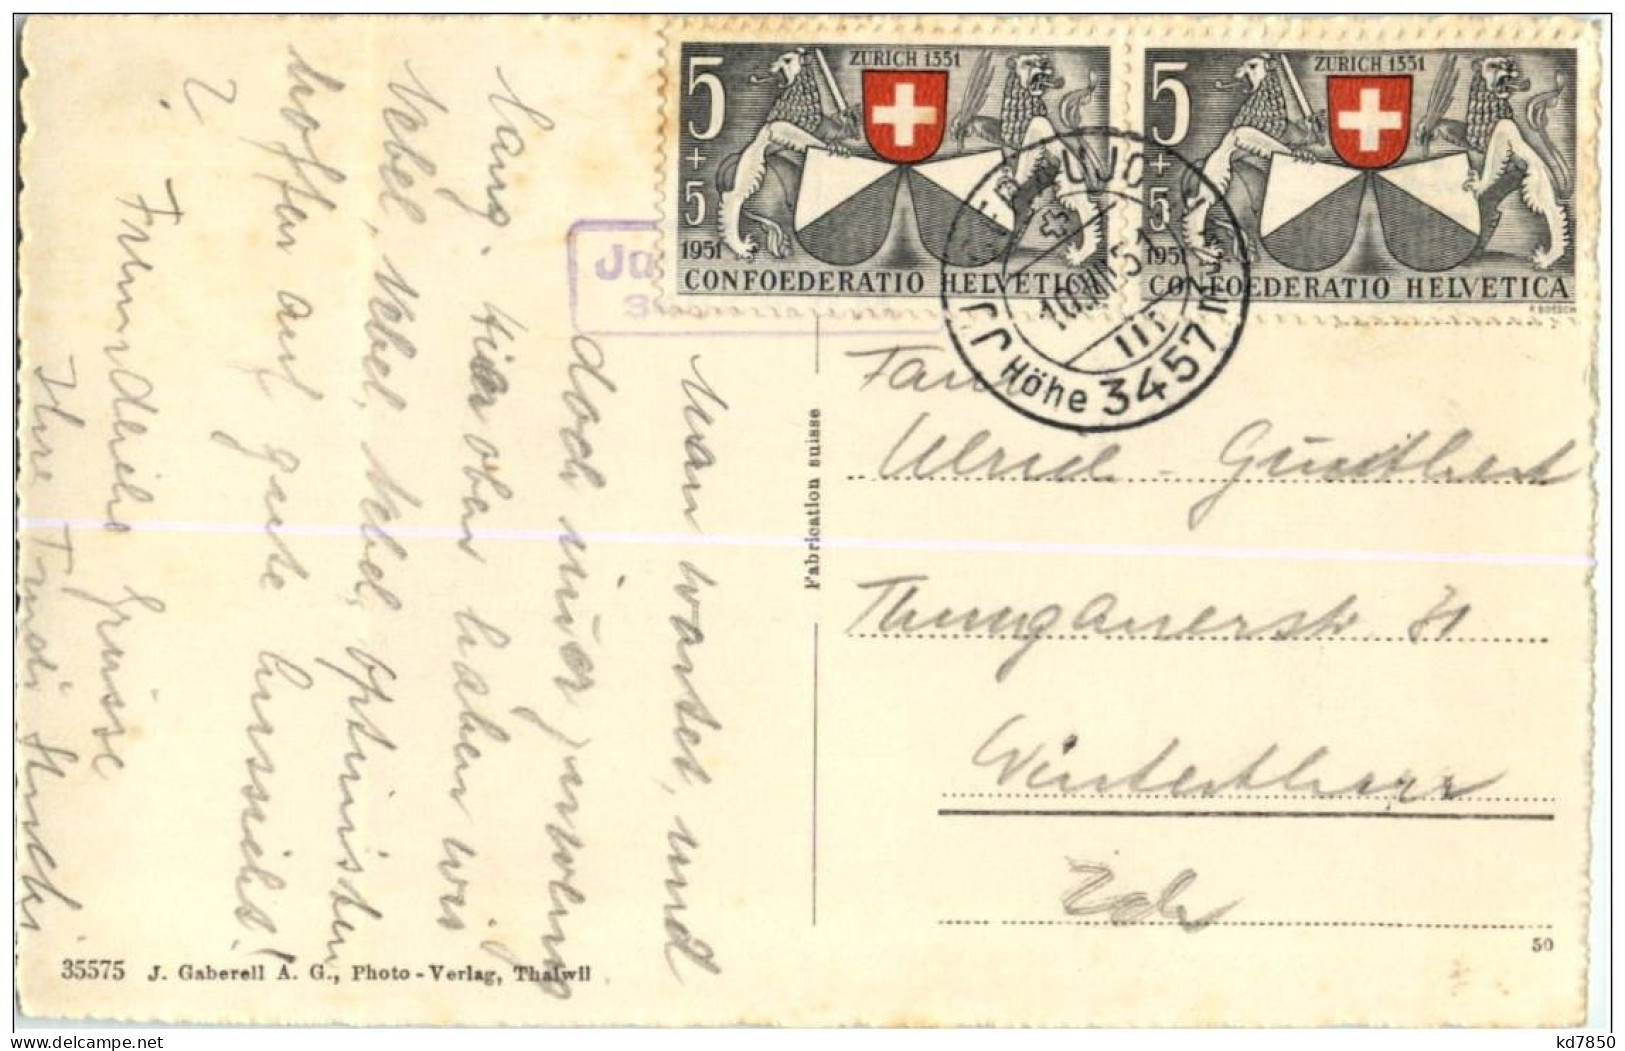 5
+
5
1951
ZURICH 1351
CONFOEDERATIO HELVETICA
5
+
5
1951
ZURICH 1351
CONFOEDERATIO HELVETICA
JUNGFRAUJOCH
10.VIII.51
Höhe 3457 m
Ju
Man wartet, und
doch immer wenig
lang. Hier oben haben wir
Nebel, Nebel, Nebel, Nebel, Optimisten
hoffen auf gute Aussicht!
Freundliche Grüsse
Ihre Trudi
Fam
Ulrich - 
31
Winterthur
Zch
Fabrication suisse
50
35575 J. Gaberell A. G., Photo-Verlag, Thalwil
kd7850